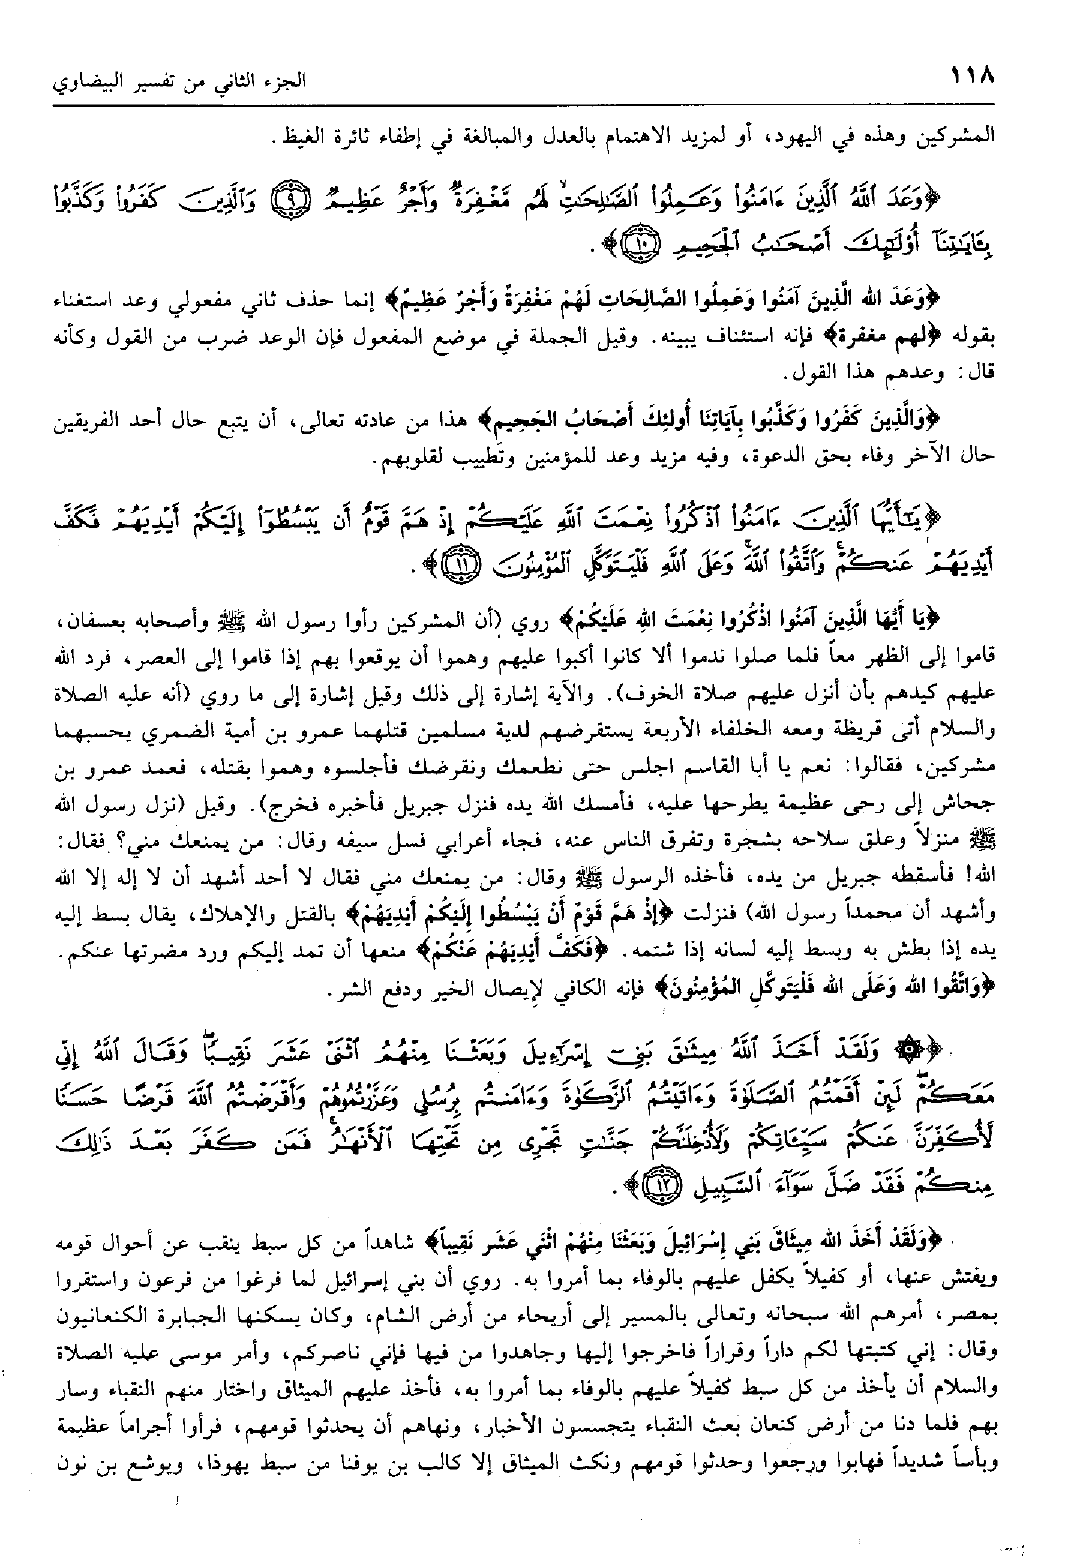 ١١٨
الجزء الثاني من تفسير البيضاوي
المشركين وهذه في اليهود، أو لمزيد الاهتمام بالعدل والمبالغة في إطفاء ثائرة الغيظ.
﴿وَعَدَ ٱللَّهُ ٱلَّذِينَ ءَامَنُوا۟ وَعَمِلُوا۟ ٱلصَّـٰلِحَـٰتِ ۙ لَهُم مَّغْفِرَةٌ وَأَجْرٌ عَظِيمٌ ﴿٩﴾ وَٱلَّذِينَ كَفَرُوا۟ وَكَذَّبُوا۟
بِـَٔايَـٰتِنَآ أُو۟لَـٰٓئِكَ أَصْحَـٰبُ ٱلْجَحِيمِ ﴿١٠﴾﴾.
﴿وَعَدَ الله الَّذِينَ آمَنُوا وَعَمِلُوا الصَّالِحَاتِ لَهُمْ مَغْفِرَةٌ وَأَجْرٌ عَظِيمٌ﴾ إنما حذف ثاني مفعولي وعد استغناء
بقوله ﴿لهم مغفرة﴾ فإنه استئناف يبينه. وقيل الجملة في موضع المفعول فإن الوعد ضرب من القول وكأنه
قال: وعدهم هذا القول.
﴿وَالَّذِينَ كَفَرُوا وَكَذَّبُوا بِآيَاتِنَا أُولئِكَ أَصْحَابُ الجَحِيمِ﴾ هذا من عادته تعالى، أن يتبع حال أحد الفريقين
حال الآخر وفاء بحق الدعوة، وفيه مزيد وعد للمؤمنين وتطييب لقلوبهم.
﴿يَـٰٓأَيُّهَا ٱلَّذِينَ ءَامَنُوا۟ ٱذْكُرُوا۟ نِعْمَتَ ٱللَّهِ عَلَيْكُمْ إِذْ هَمَّ قَوْمٌ أَن يَبْسُطُوٓا۟ إِلَيْكُمْ أَيْدِيَهُمْ فَكَفَّ
أَيْدِيَهُمْ عَنكُمْ ۖ وَٱتَّقُوا۟ ٱللَّهَ ۚ وَعَلَى ٱللَّهِ فَلْيَتَوَكَّلِ ٱلْمُؤْمِنُونَ ﴿١١﴾﴾.
﴿يَا أَيُّهَا الَّذِينَ آمَنُوا اذْكُرُوا نِعْمَتَ اللهِ عَلَيْكُمْ﴾ روي (أن المشركين رأوا رسول الله ﷺ وأصحابه بعسفان،
قاموا إلى الظهر معاً فلما صلوا ندموا ألا كانوا أكبوا عليهم وهموا أن يوقعوا بهم إذا قاموا إلى العصر، فرد الله
عليهم كيدهم بأن أنزل عليهم صلاة الخوف). والآية إشارة إلى ذلك وقيل إشارة إلى ما روي (أنه عليه الصلاة
والسلام أتى قريظة ومعه الخلفاء الأربعة يستقرضهم لدية مسلمين قتلهما عمرو بن أمية الضمري يحسبهما
مشركين، فقالوا: نعم يا أبا القاسم اجلس حتى نطعمك ونقرضك فأجلسوه وهموا بقتله، فعمد عمرو بن
جحاش إلى رحى عظيمة يطرحها عليه، فأمسك الله يده فنزل جبريل فأخبره فخرج). وقيل (نزل رسول الله
ﷺ منزلاً وعلق سلاحه بشجرة وتفرق الناس عنه، فجاء أعرابي فسل سيفه وقال: من يمنعك مني؟ فقال:
الله! فأسقطه جبريل من يده، فأخذه الرسول ﷺ وقال: من يمنعك مني فقال لا أحد أشهد أن لا إله إلا الله
وأشهد أن محمداً رسول الله) فنزلت ﴿إِذْ هَمَّ قَوْمٌ أَنْ يَبْسُطُوا إِلَيْكُمْ أَيْدِيَهُمْ﴾ بالقتل والإهلاك، يقال بسط إليه
يده إذا بطش به وبسط إليه لسانه إذا شتمه. ﴿فَكَفَّ أَيْدِيَهُمْ عَنْكُمْ﴾ منعها أن تمد إليكم ورد مضرتها عنكم.
﴿وَاتَّقُوا الله وَعَلَى الله فَلْيَتَوكَّلِ المُؤْمِنُونَ﴾ فإنه الكافي لإيصال الخير ودفع الشر.
﴿۞ وَلَقَدْ أَخَذَ ٱللَّهُ مِيثَـٰقَ بَنِىٓ إِسْرَٰٓءِيلَ وَبَعَثْنَا مِنْهُمُ ٱثْنَىْ عَشَرَ نَقِيبًا ۖ وَقَالَ ٱللَّهُ إِنِّى
مَعَكُمْ ۖ لَئِنْ أَقَمْتُمُ ٱلصَّلَوٰةَ وَءَاتَيْتُمُ ٱلزَّكَوٰةَ وَءَامَنتُم بِرُسُلِى وَعَزَّرْتُمُوهُمْ وَأَقْرَضْتُمُ ٱللَّهَ قَرْضًا حَسَنًا
لَّأُكَفِّرَنَّ عَنكُمْ سَيِّـَٔاتِكُمْ وَلَأُدْخِلَنَّكُمْ جَنَّـٰتٍ تَجْرِى مِن تَحْتِهَا ٱلْأَنْهَـٰرُ ۚ فَمَن كَفَرَ بَعْدَ ذَٰلِكَ
مِنكُمْ فَقَدْ ضَلَّ سَوَآءَ ٱلسَّبِيلِ ﴿١٢﴾﴾.
﴿وَلَقَدْ أَخَذَ الله مِيثَاقَ بَنِي إِسْرَائِيلَ وَبَعَثْنَا مِنْهُمْ اثْنَي عَشَر نَقِيباً﴾ شاهداً من كل سبط ينقب عن أحوال قومه
ويفتش عنها، أو كفيلاً يكفل عليهم بالوفاء بما أمروا به. روي أن بني إسرائيل لما فرغوا من فرعون واستقروا
بمصر، أمرهم الله سبحانه وتعالى بالمسير إلى أريحاء من أرض الشام، وكان يسكنها الجبابرة الكنعانيون
وقال: إني كتبتها لكم داراً وقراراً فاخرجوا إليها وجاهدوا من فيها فإني ناصركم، وأمر موسى عليه الصلاة
والسلام أن يأخذ من كل سبط كفيلاً عليهم بالوفاء بما أمروا به، فأخذ عليهم الميثاق واختار منهم النقباء وسار
بهم فلما دنا من أرض كنعان بعث النقباء يتجسسون الأخبار، ونهاهم أن يحدثوا قومهم، فرأوا أجراماً عظيمة
وبأساً شديداً فهابوا ورجعوا وحدثوا قومهم ونكث الميثاق إلا كالب بن يوفنا من سبط يهوذا، ويوشع بن نون